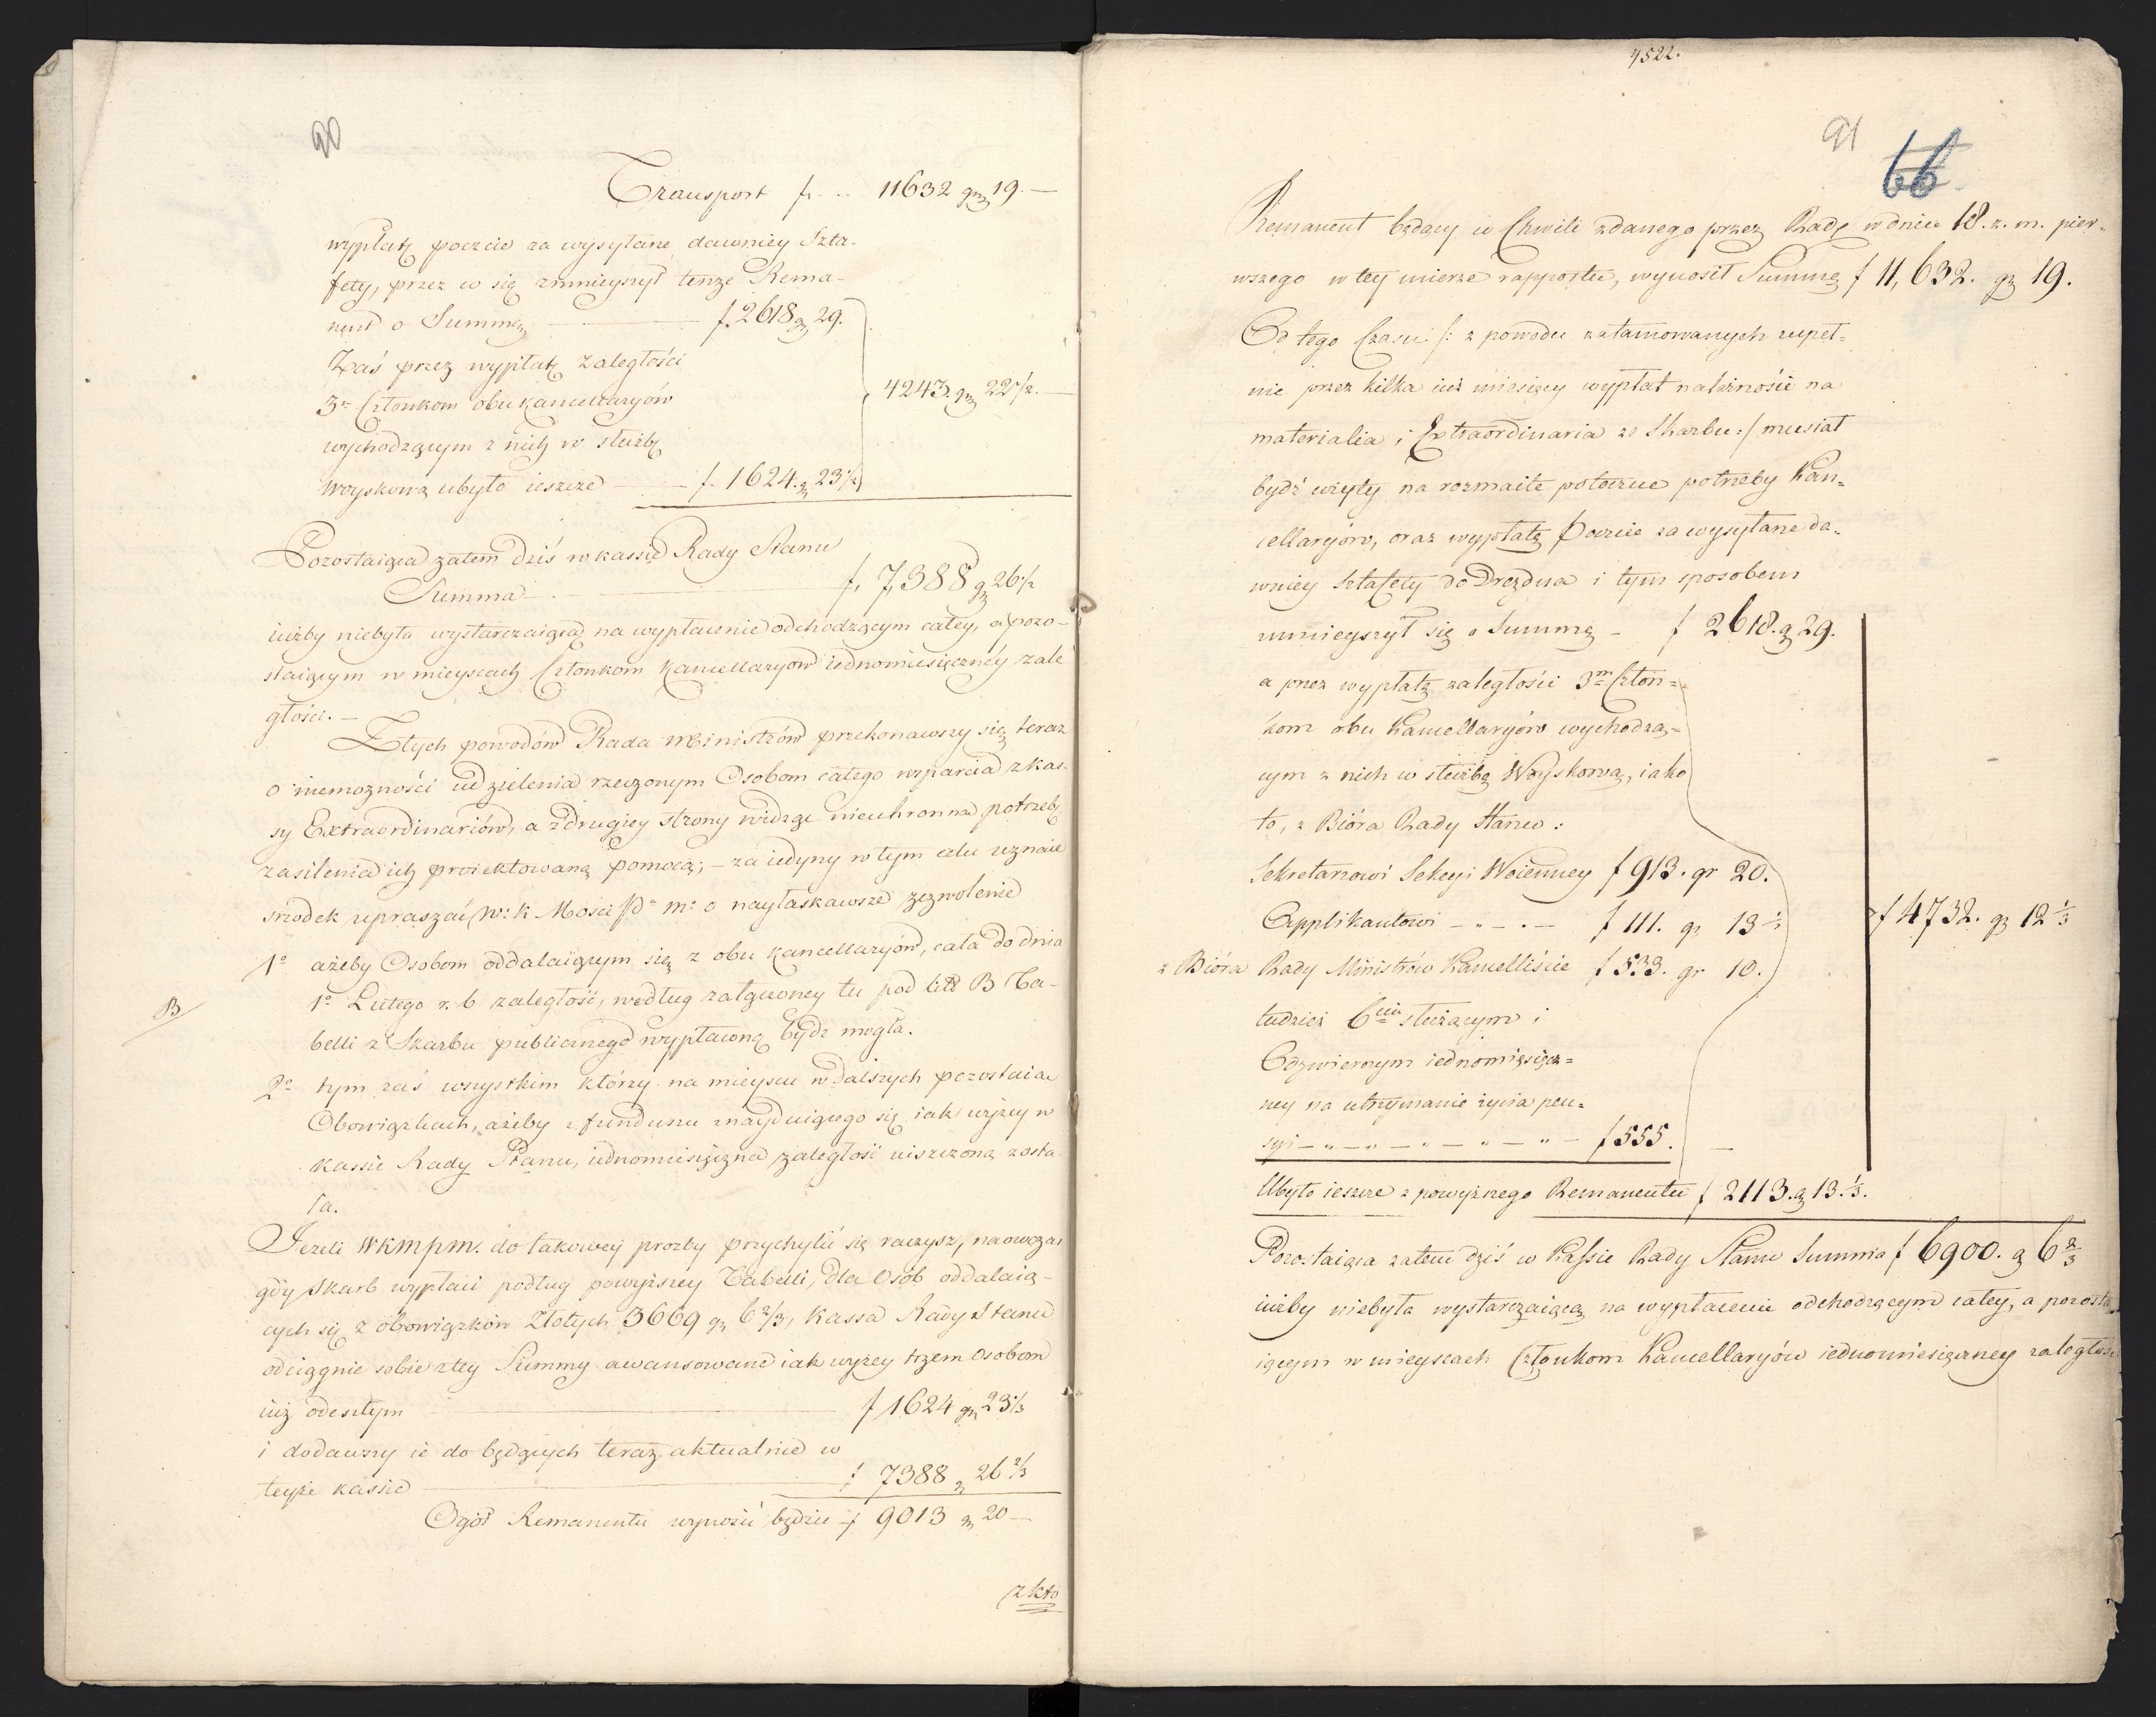 90
Transport f. - .. 11632 gr 19. —
wypłatę poczcie za wysyłane dawniey Szta-
fety, przez co się zmnieyszył tenże Rema-
nent o Summę — f. 2618 gr 29.
Zaś przez wypłatę zaległości
3m Członkom obu kancellaryów
4243. gr 22 1/2. —
wychodzącym z nich w służbę
woyskową ubyło ieszcze — f. 1624. gr 23 1/3
Pozostaiąca zatem dziś w kassie Rady Stanu
Summa — f. 7,388 gr 26 1/2
iużby niebyła wystarczaiącą na wypłacenie odchodzącym całey, a pozo-
staiącym w mieyscach Członkom Kancellaryów iednomiesięczney zale
głości. —
Z tych powodów Rada Ministrów przekonawszy się teraz
o niemożności udzielenia rzeczonym Osobom całego wsparcia z kas-
sy Extraordinariów, a z drugiey strony widząc nieuchronna potrzebę
zasilenia ich proiektowaną pomocą; — za iedyny w tym celu uznaie
srzodek upraszać W: K Mości Pa ma o nayłaskawsze zezwolenie
1o ażeby Osobom oddalaiącym się z obu kancellaryów, cała do dnia
1o Lutego r. b zaległość, według załączoney tu pod litt B Ta-
B/
belli z Skarbu publicznego wypłaconą bydź mogła.
2o tym zaś wszystkim którzy na mieyscu w dalszych pozostaią
Obowiązkach, ażeby z funduszu znayduiącego się iak wyżey w
kassie Rady Stanu, iednomiesięczna zaległość uiszczona zosta
ła.
Jeżeli WKMPM. do takowey prozby przychylić się raczysz, naówczas
gdy Skarb wypłaci podług powyższey Tabelli, dla Osób oddalaią-
cych się z obowiązków Złotych 3669 gr 6 2/3, Kassa Rady Stanu
odciągnie sobie z tey Summy awansowane iak wyżey trzem Osobom
iuż odeszłym — f 1624 gr 23 1/3
i dodawszy ie do będących teraz aktualnie w
teyże kassie — f 7388 gr 26 2/3
Ogół Remanentu wynosić będzie f 9013 gr 20 —
z kto
4522.
91
66
Remanent będący w Chwili zdanego przez Radę w dniu 18. z. m. pier-
wszego w tey mierze rapportu, wynosił Summę f 11,632. gr 19.
Od tego Czasu /: z powodu zatamowanych zupeł=
nie przez kilka iuż miesięcy wypłat należności na
materialia i Extraordinaria ze Skarbu :/ musiał
bydź uięty na rozmaite potoczne potrzeby Kan=
cellaryów, oraz wypłatę Poczcie za wysyłane da-
wniey Sztafety do Drezdna i tym sposobem
zmnieyszył się o Summę - f 2618. gr 29.
a przez wypłatę zaległości 3m Człon=
kom obu Kancellaryów wychodzą=
cym z nich w służbę Woyskową, iako
to, z Bióra Rady Stanu:
Sekretarzowi Sekcyi Woienney f 913. gr 20.
Applikantowi - - . - f 111. gr 13 1/3
f 4732. gr 12 1/3
z Bióra Rady Ministrów Kancelliście f 533. gr 10.
tudzież 6ciu służącym i
Odzwiernym iednomiesięcz=
ney na utrzymanie życia pen=
syi - " - " - " - " - " - f 555.
Ubyło ieszcze z powyższego Remanentu f 2113. gr 13. 1/3.
Pozostaiąca zatem dziś w Kassie Rady Stanu Summa f 6900. gr 6 2/3
iużby niebyła wystarczaiącą na wypłacenie odchodzącym całey, a pozosta
iącym w mieyscach Członkom Kancellaryów iednomiesięczney zaległości